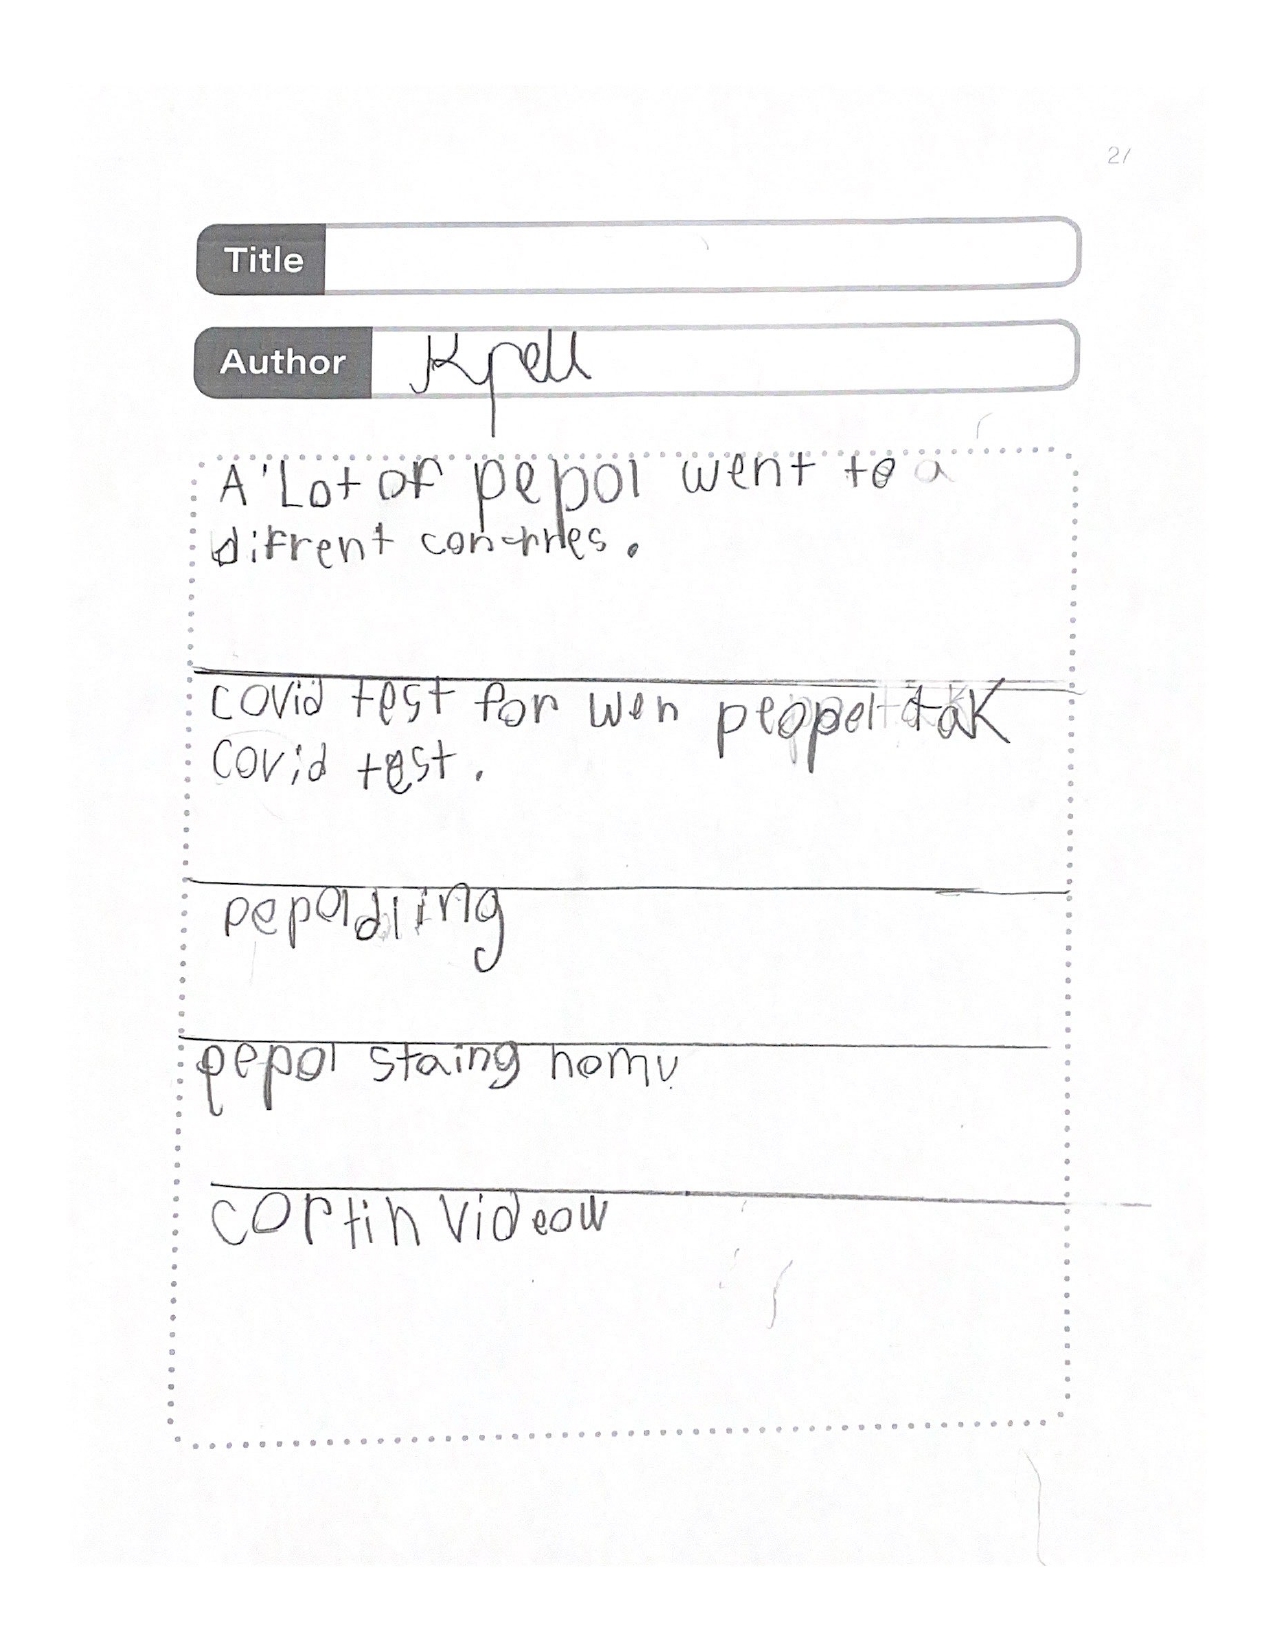 21
Title
Author Kyell
A Lot of pepol went to a
difrent contries.
covid test for wen peopel tak
covid test.
pepol diing
pepol staing home
cortin videow